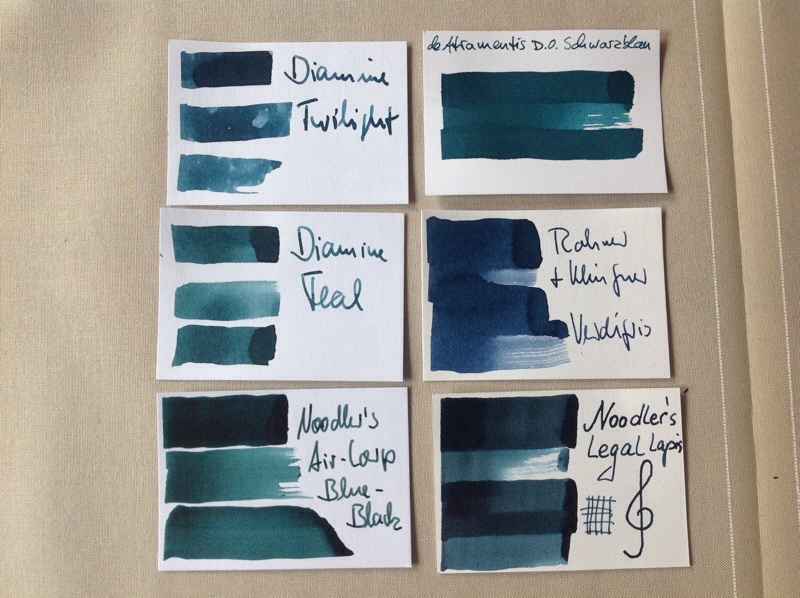 Diamine
Twilight
de Atramentis D.O. Schwarzblau
Diamine
Teal
Rohrer
+ Klingner
Verdigris
Noodler's
Air-Corp
Blue-
Black
Noodler's
Legal Lapis